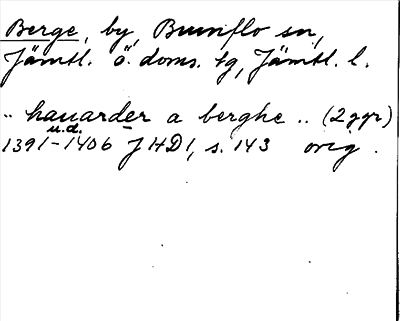 Berge, by, Brunflo sn,
Jämtl. ö. doms. tg, Jämtl. l.
.. hauarder a berghe .. (2 ggr)
u.d.
1391-1406 JHD1, s. 143 orig.